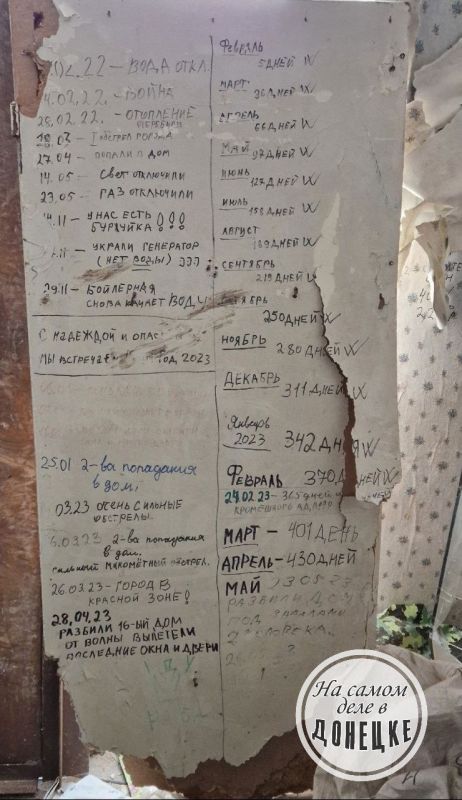 .02.22 – ВОДА ОТКЛ.
4.02.22. – ВОЙНА
25.02.22. – ОТОПЛЕНИЕ
18.03 – I ОБСТРЕЛ ГОРОДА
27.04 – ПОПАЛИ В ДОМ
14.05 – СВЕТ ОТКЛЮЧИЛИ
23.05 – ГАЗ ОТКЛЮЧИЛИ
.11 – У НАС ЕСТЬ
БУРЖУЙКА!!!
.11 – УКРАЛИ ГЕНЕРАТОР
(НЕТ ВОДЫ)
29.11 – БОЙЛЕРНАЯ
СНОВА КАЧАЕТ ВОДУ
С НАДЕЖДОЙ И ОПАС
МЫ ВСТРЕЧАЕ ГОД 2023
25.01 2-ва попадания
в дом,
03.23 ОЧЕНЬ СИЛЬНЫЕ
ОБСТРЕЛЫ.
6.03.23 2-ва попадания
в дом,
сильный обстрел.
26.03.23 – ГОРОД В
КРАСНОЙ ЗОНЕ!
28.04.23
РАЗБИЛИ 16-ЫЙ ДОМ
ОТ ВОЛНЫ ВЫЛЕТЕЛИ
ПОСЛЕДНИЕ ОКНА И ДВЕРИ
ФЕВРАЛЬ
5 ДНЕЙ W
МАРТ
36 ДНЕЙ W
АПРЕЛЬ
66 ДНЕЙ W
МАЙ 97 ДНЕЙ W
ИЮНЬ
127 ДНЕЙ W
ИЮЛЬ
158 ДНЕЙ W
АВГУСТ
189 ДНЕЙ W
СЕНТЯБРЬ
219 ДНЕЙ W
ТЯБРЬ
250 ДНЕЙ W
НОЯБРЬ
280 ДНЕЙ W
ДЕКАБРЬ
311 ДНЕЙ W
Январь
2023 342 ДНЯ W
ФЕВРАЛЬ 370 ДНЕЙ W
24.02.23 – 365 дней
КРОМЕШНОГО АДА
МАРТ – 401 ДЕНЬ
АПРЕЛЬ – 430 ДНЕЙ
МАЙ
РАЗБИЛИ ДОМ
ПОД ЗАВАЛАМИ
ЧЕЛОВЕКА
На самом
деле в
ДОНЕЦКЕ